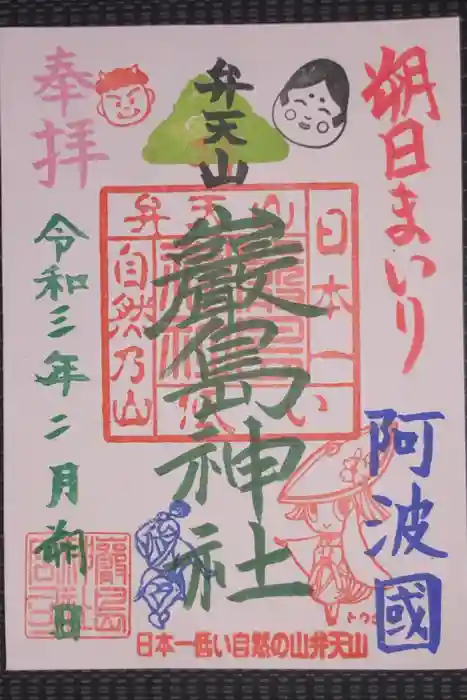 朔日まいり
阿波國
弁天山
巖島神社
弁天山
日本一低い
自然乃山
奉拝
令和三年二月朔日
日本一低い自然の山弁天山